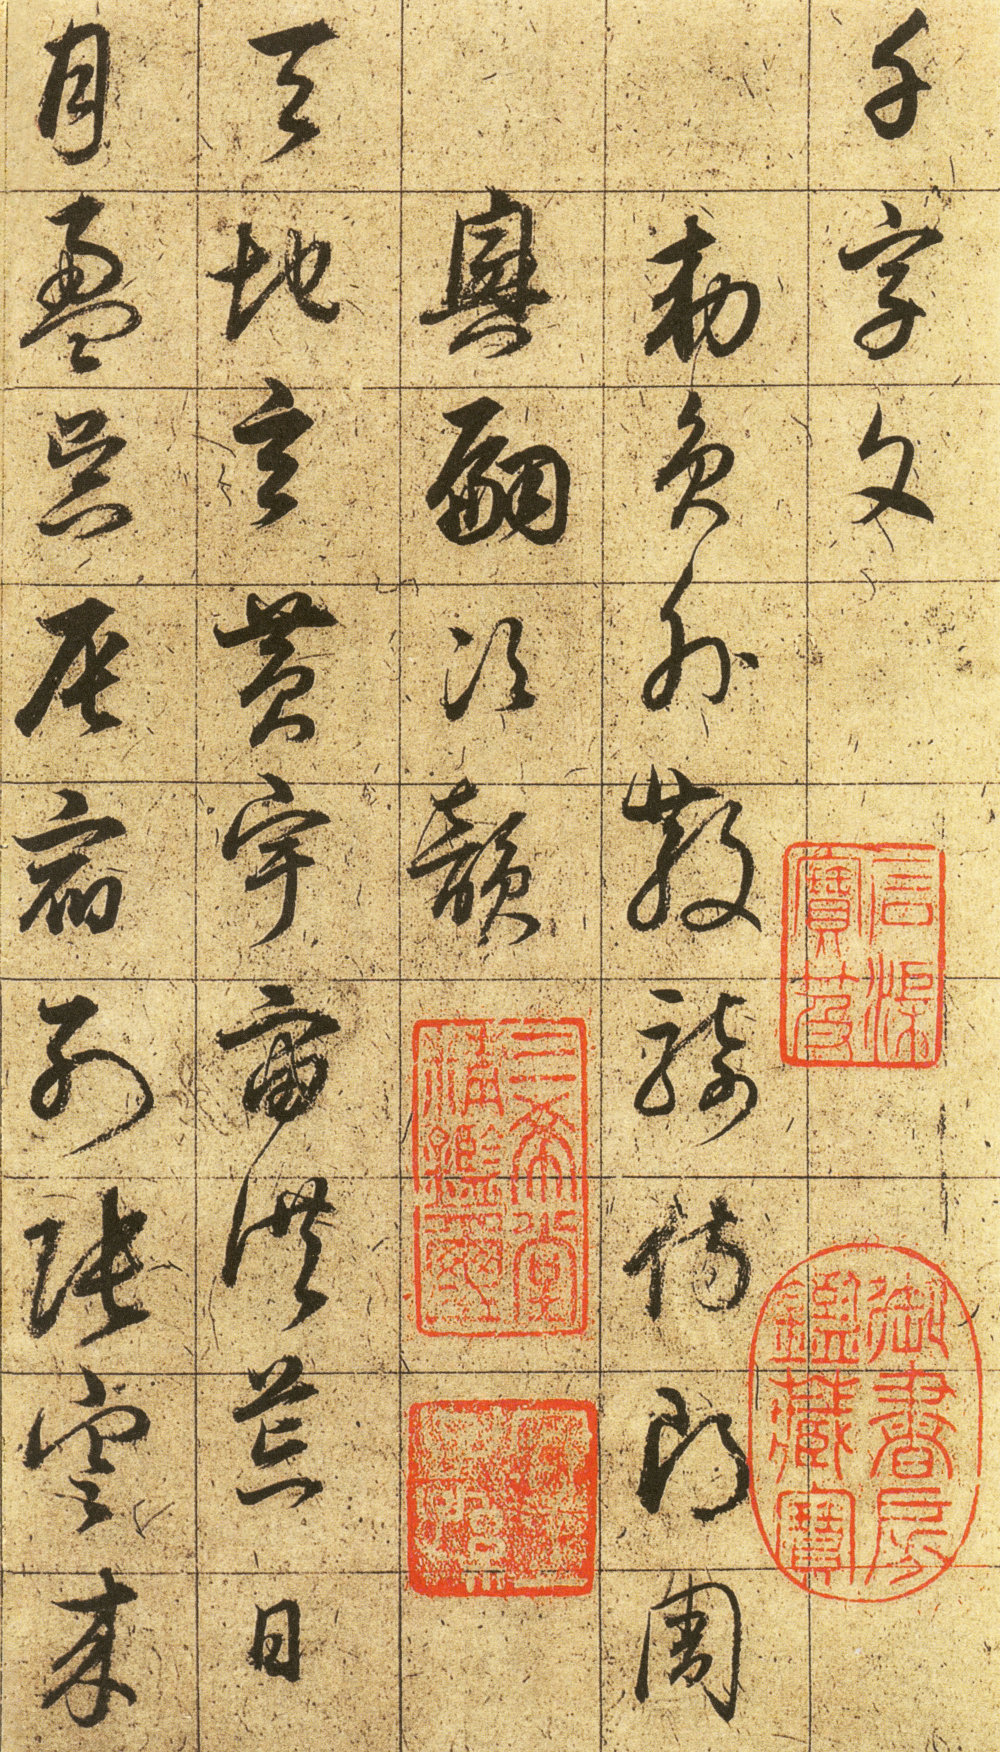 千字文
敕員外散騎侍郎周
興嗣次韻
天地玄黃宇宙洪荒日
月盈昃辰宿列張寒來
石渠寶笈
御書房鑑藏寶
三希堂精鑑璽